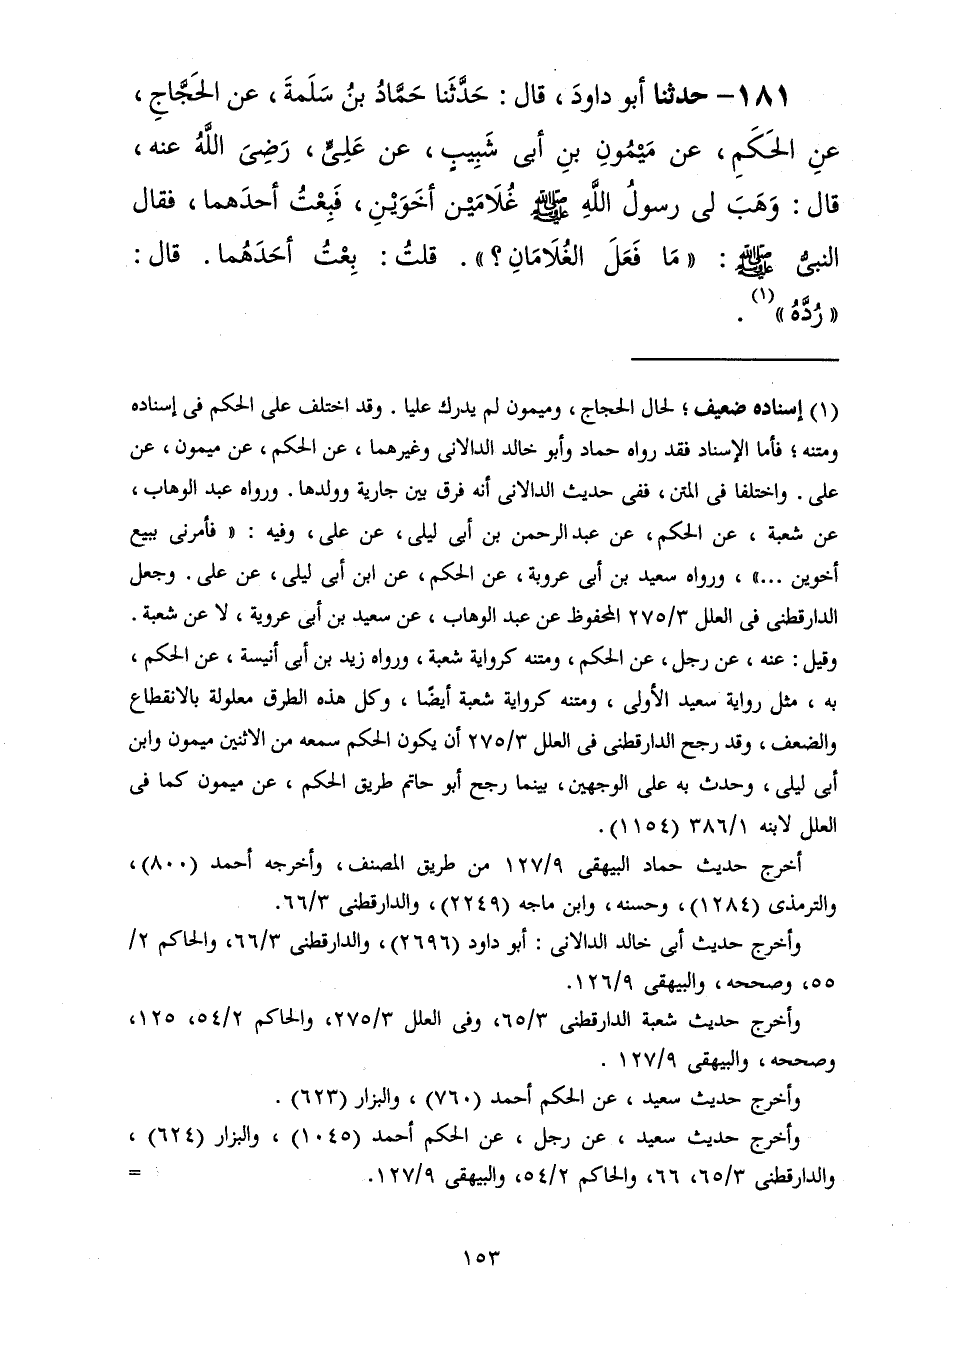 ١٨١- حدثنا أبو داودَ ، قال : حَدَّثَنا حَمَّادُ بنُ سَلَمةَ ، عن الحَجَّاجِ ،
عنِ الحَكَمِ ، عن مَيْمُونِ بنِ أبى شَبِيبٍ ، عن عَلِىٍّ ، رَضِىَ اللَّهُ عنه ،
قال : وَهَبَ لى رسولُ اللَّهِ ﷺ غُلَامَيْنِ أخَوَيْنِ ، فَبِعْتُ أحدَهما ، فقال
النبىُّ ﷺ : « مَا فَعَلَ الغُلَامَانِ ؟ » . قلتُ : بِعْتُ أحَدَهُما . قال :
« رُدَّهُ »(١) .
(١) إسناده ضعيف ؛ لحال الحجاج ، وميمون لم يدرك عليا . وقد اختلف على الحكم فى إسناده
ومتنه ؛ فأما الإسناد فقد رواه حماد وأبو خالد الدالانى وغيرهما ، عن الحكم ، عن ميمون ، عن
على . واختلفا فى المتن ، ففى حديث الدالانى أنه فرق بين جارية وولدها . ورواه عبد الوهاب ،
عن شعبة ، عن الحكم ، عن عبد الرحمن بن أبى ليلى ، عن على ، وفيه : « فأمرنى ببيع
أخوين ...» ، ورواه سعيد بن أبى عروبة ، عن الحكم ، عن ابن أبى ليلى ، عن على . وجعل
الدارقطنى فى العلل ٢٧٥/٣ المحفوظ عن عبد الوهاب ، عن سعيد بن أبى عروبة ، لا عن شعبة .
وقيل : عنه ، عن رجل ، عن الحكم ، ومتنه كرواية شعبة ، ورواه زيد بن أبى أنيسة ، عن الحكم ،
به ، مثل رواية سعيد الأولى ، ومتنه كرواية شعبة أيضًا ، وكل هذه الطرق معلولة بالانقطاع
والضعف ، وقد رجح الدارقطنى فى العلل ٢٧٥/٣ أن يكون الحكم سمعه من الاثنين ميمون وابن
أبى ليلى ، وحدث به على الوجهين ، بينما رجح أبو حاتم طريق الحكم ، عن ميمون كما فى
العلل لابنه ٣٨٦/١ (١١٥٤).
أخرج حديث حماد البيهقى ١٢٧/٩ من طريق المصنف ، وأخرجه أحمد (٨٠٠)،
والترمذى (١٢٨٤)، وحسنه ، وابن ماجه (٢٢٤٩)، والدارقطنى ٦٦/٣.
وأخرج حديث أبى خالد الدالانى : أبو داود (٢٦٩٦)، والدارقطنى ٦٦/٣، والحاكم ٢/
٥٥، وصححه ، والبيهقى ١٢٦/٩.
وأخرج حديث شعبة الدارقطنى ٦٥/٣، وفى العلل ٢٧٥/٣، والحاكم ٥٤/٢، ١٢٥،
وصححه ، والبيهقى ١٢٧/٩ .
وأخرج حديث سعيد ، عن الحكم أحمد (٧٦٠) ، والبزار (٦٢٣) .
وأخرج حديث سعيد ، عن رجل ، عن الحكم أحمد (١٠٤٥) ، والبزار (٦٢٤) ،
والدارقطنى ٦٥/٣، ٦٦، والحاكم ٥٤/٢، والبيهقى ١٢٧/٩. =
١٥٣